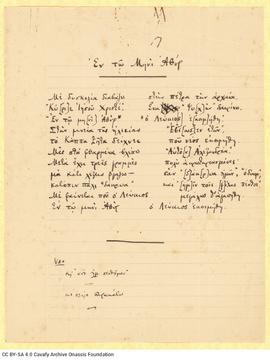 Ἐν τῷ Μηνὶ Ἀθύρ
Μὲ δυσκολία διαβάζω στὴν πέτρα τὴν ἀρχαία
«Κύ[ρι]ε Ἰησοῦ Χριστέ». Ἕνα «Ψυ[χ]ὴν» διακρίνω.
«Ἐν τῷ μη[νὶ] Ἀθὺρ» «Ὁ Λεύκιο[ς] ἐ[κοιμ]ήθη».
Στὴ μνεία τῆς ἡλικίας «Ἐβί[ωσ]εν ἐτῶν»,
τὸ Κάππα Ζῆτα δείχνει ποὺ νέος ἐκοιμήθη.
Μὲς στὰ φθαρμένα βλέπω «Αὐτὸ[ν] Ἀλεξανδρέα».
Μετὰ ἔχει τρεῖς γραμμὲς πολὺ ἀκρωτηριασμένες
μὰ κάτι λέξεις βγάζω — σὰν «δ[ά]κρυα ἡμῶν», «ὀδύνην»,
κατόπιν πάλι «δάκρυα», καὶ «[ἡμ]ῖν τοῖς [φ]ίλοις πένθος».
Μὲ φαίνεται ποὺ ὁ Λεύκιος μεγάλως θ' ἀγαπήθη.
Ἐν τῷ μηνὶ Ἀθὺρ ὁ Λεύκιος ἐκοιμήθη.
CC BY-SA 4.0 Cavafy Archive Onassis Foundation